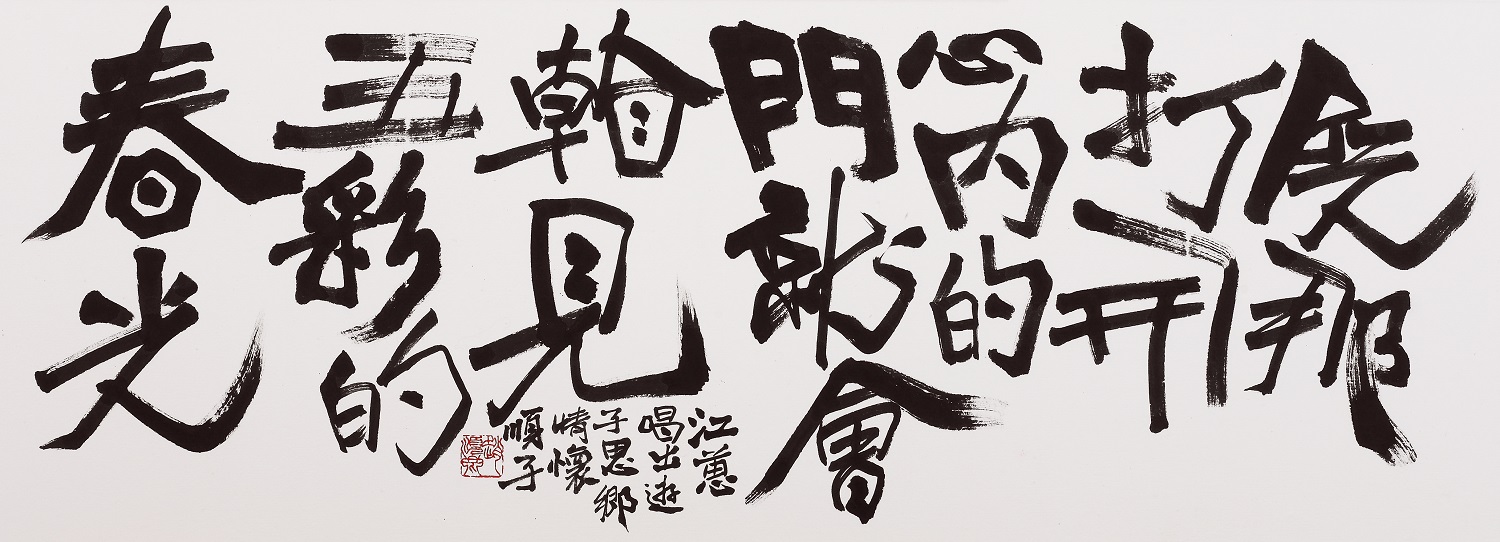 阮那
打開
心內的
門就會
看見
五彩的
春光
江蕙
唱出遊
子思鄉
情懷
順子